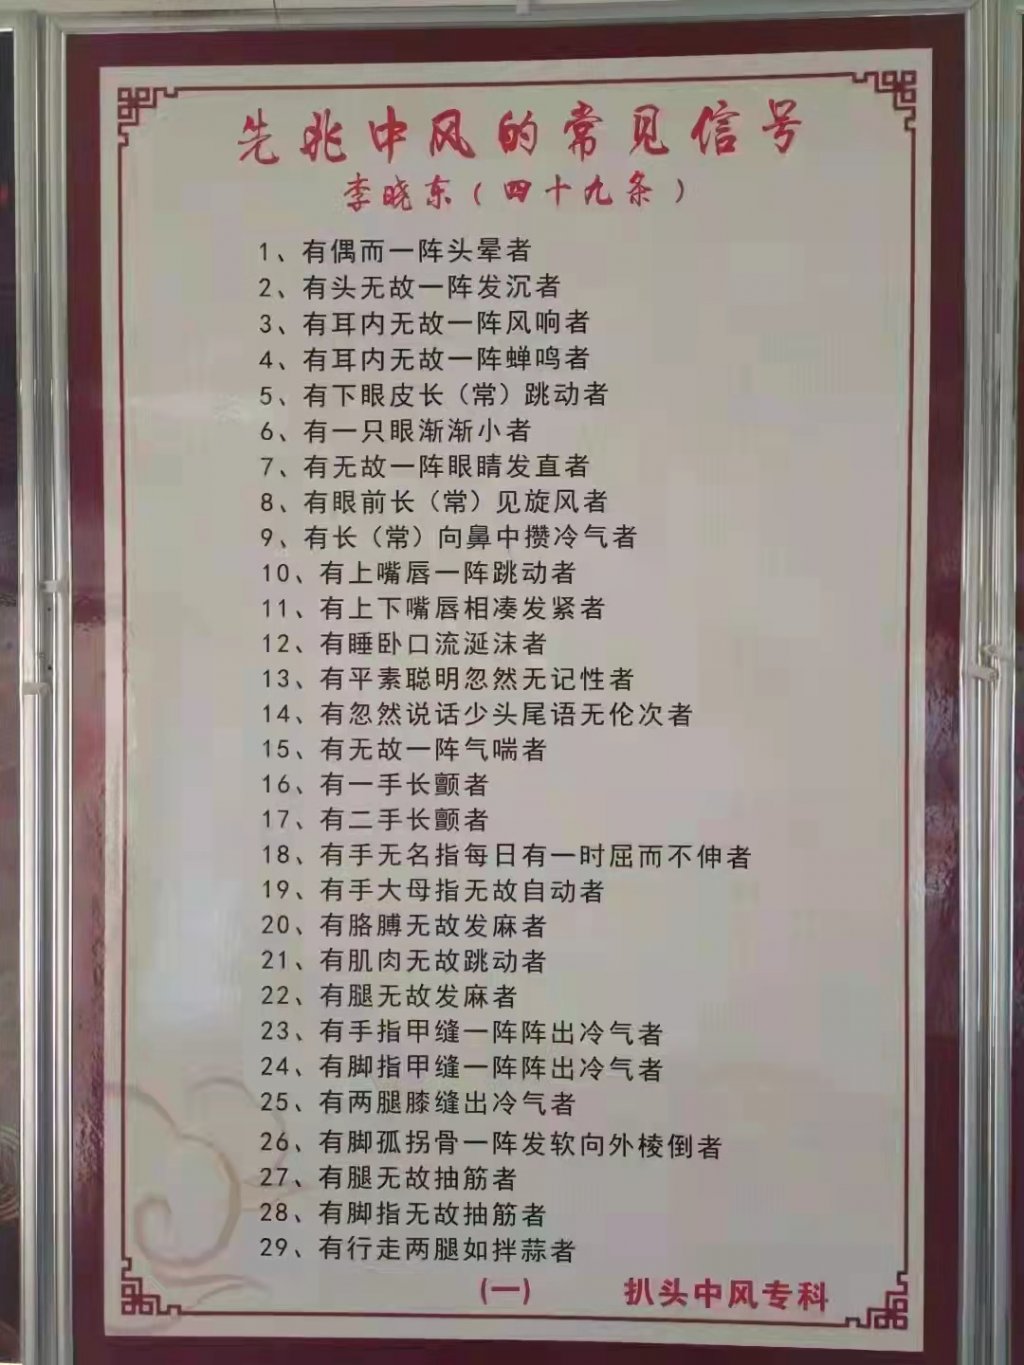 先兆中风的常见信号
李晓东（四十九条）
1、有偶而一阵头晕者
2、有头无故一阵发沉者
3、有耳内无故一阵风响者
4、有耳内无故一阵蝉鸣者
5、有下眼皮长（常）跳动者
6、有一只眼渐渐小者
7、有无故一阵眼睛发直者
8、有眼前长（常）见旋风者
9、有长（常）向鼻中攒冷气者
10、有上嘴唇一阵跳动者
11、有上下嘴唇相凑发紧者
12、有睡卧口流涎沫者
13、有平素聪明忽然无记性者
14、有忽然说话少头尾语无伦次者
15、有无故一阵气喘者
16、有一手长颤者
17、有二手长颤者
18、有手无名指每日有一时屈而不伸者
19、有手大母指无故自动者
20、有胳膊无故发麻者
21、有肌肉无故跳动者
22、有腿无故发麻者
23、有手指甲缝一阵阵出冷气者
24、有脚指甲缝一阵阵出冷气者
25、有两腿膝缝出冷气者
26、有脚孤拐骨一阵发软向外棱倒者
27、有腿无故抽筋者
28、有脚指无故抽筋者
29、有行走两腿如拌蒜者
(一) 扒头中风专科